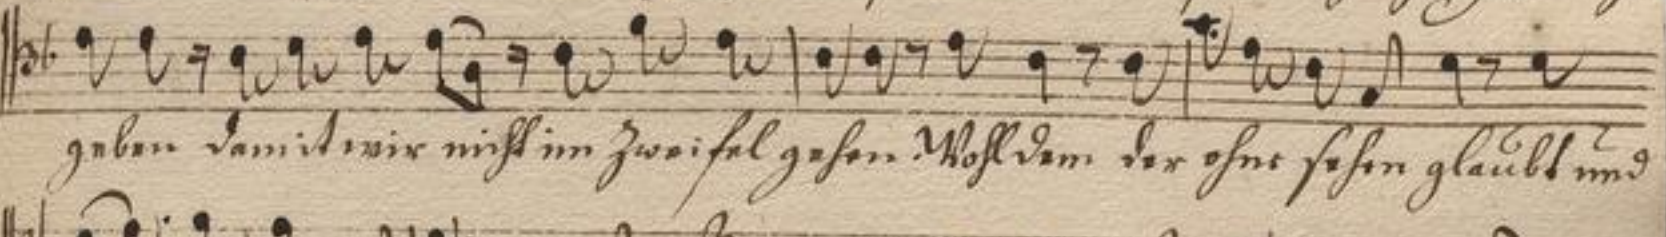 geben damit wir nicht im Zweifel gehen. Wohl dem der ohne sehen glaubt und